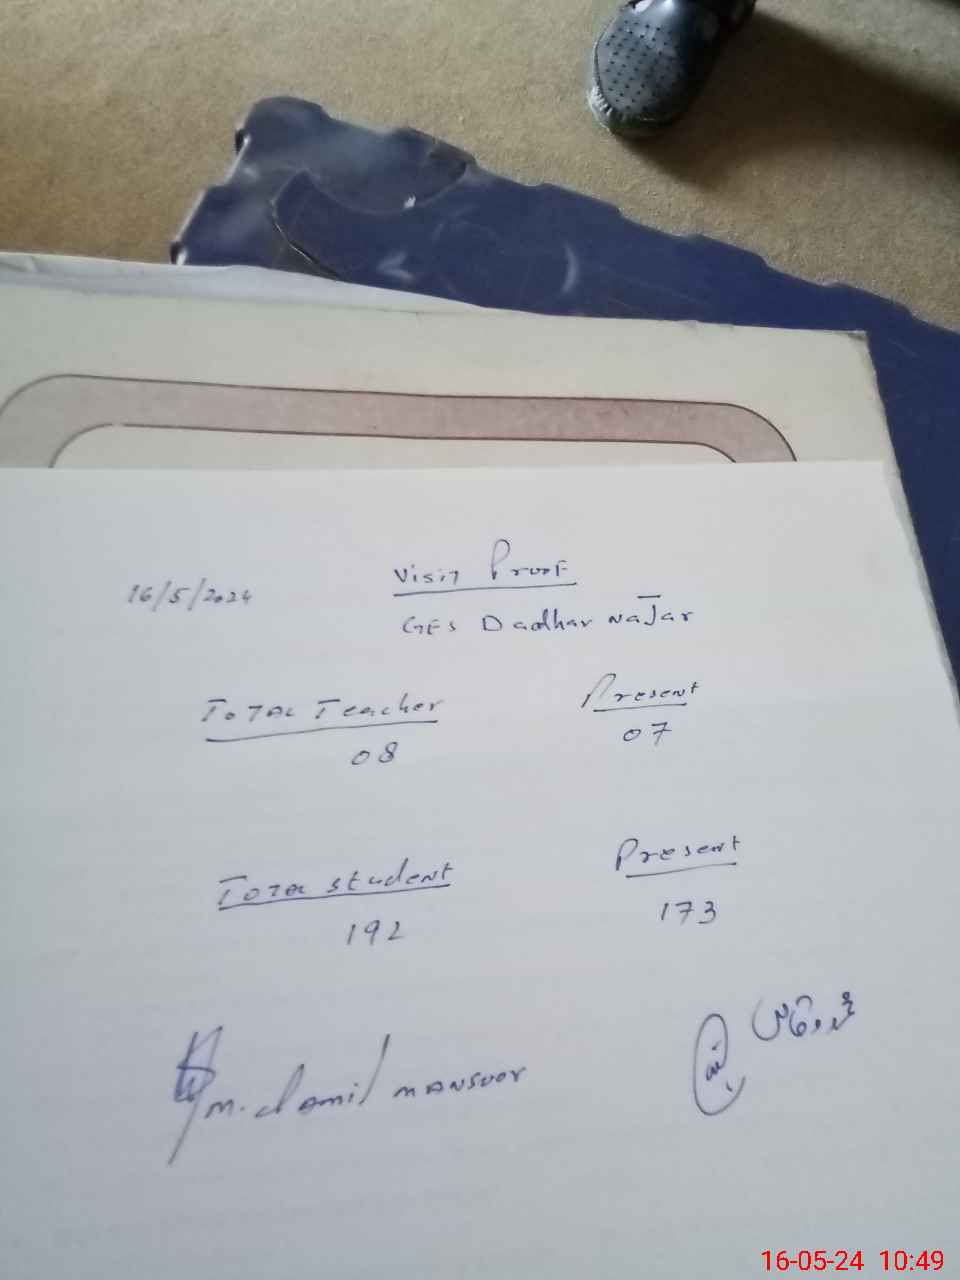 16/5/2024
Visit Proof
GES Dadhar Najar
Total Teacher Present
08 07
Total Student Present
192 173
M. Jamil Mansoor
16-05-24 10:49